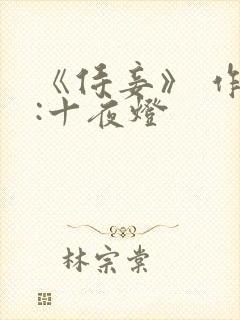 《侍妾》 作
:十夜燈
林宗棠